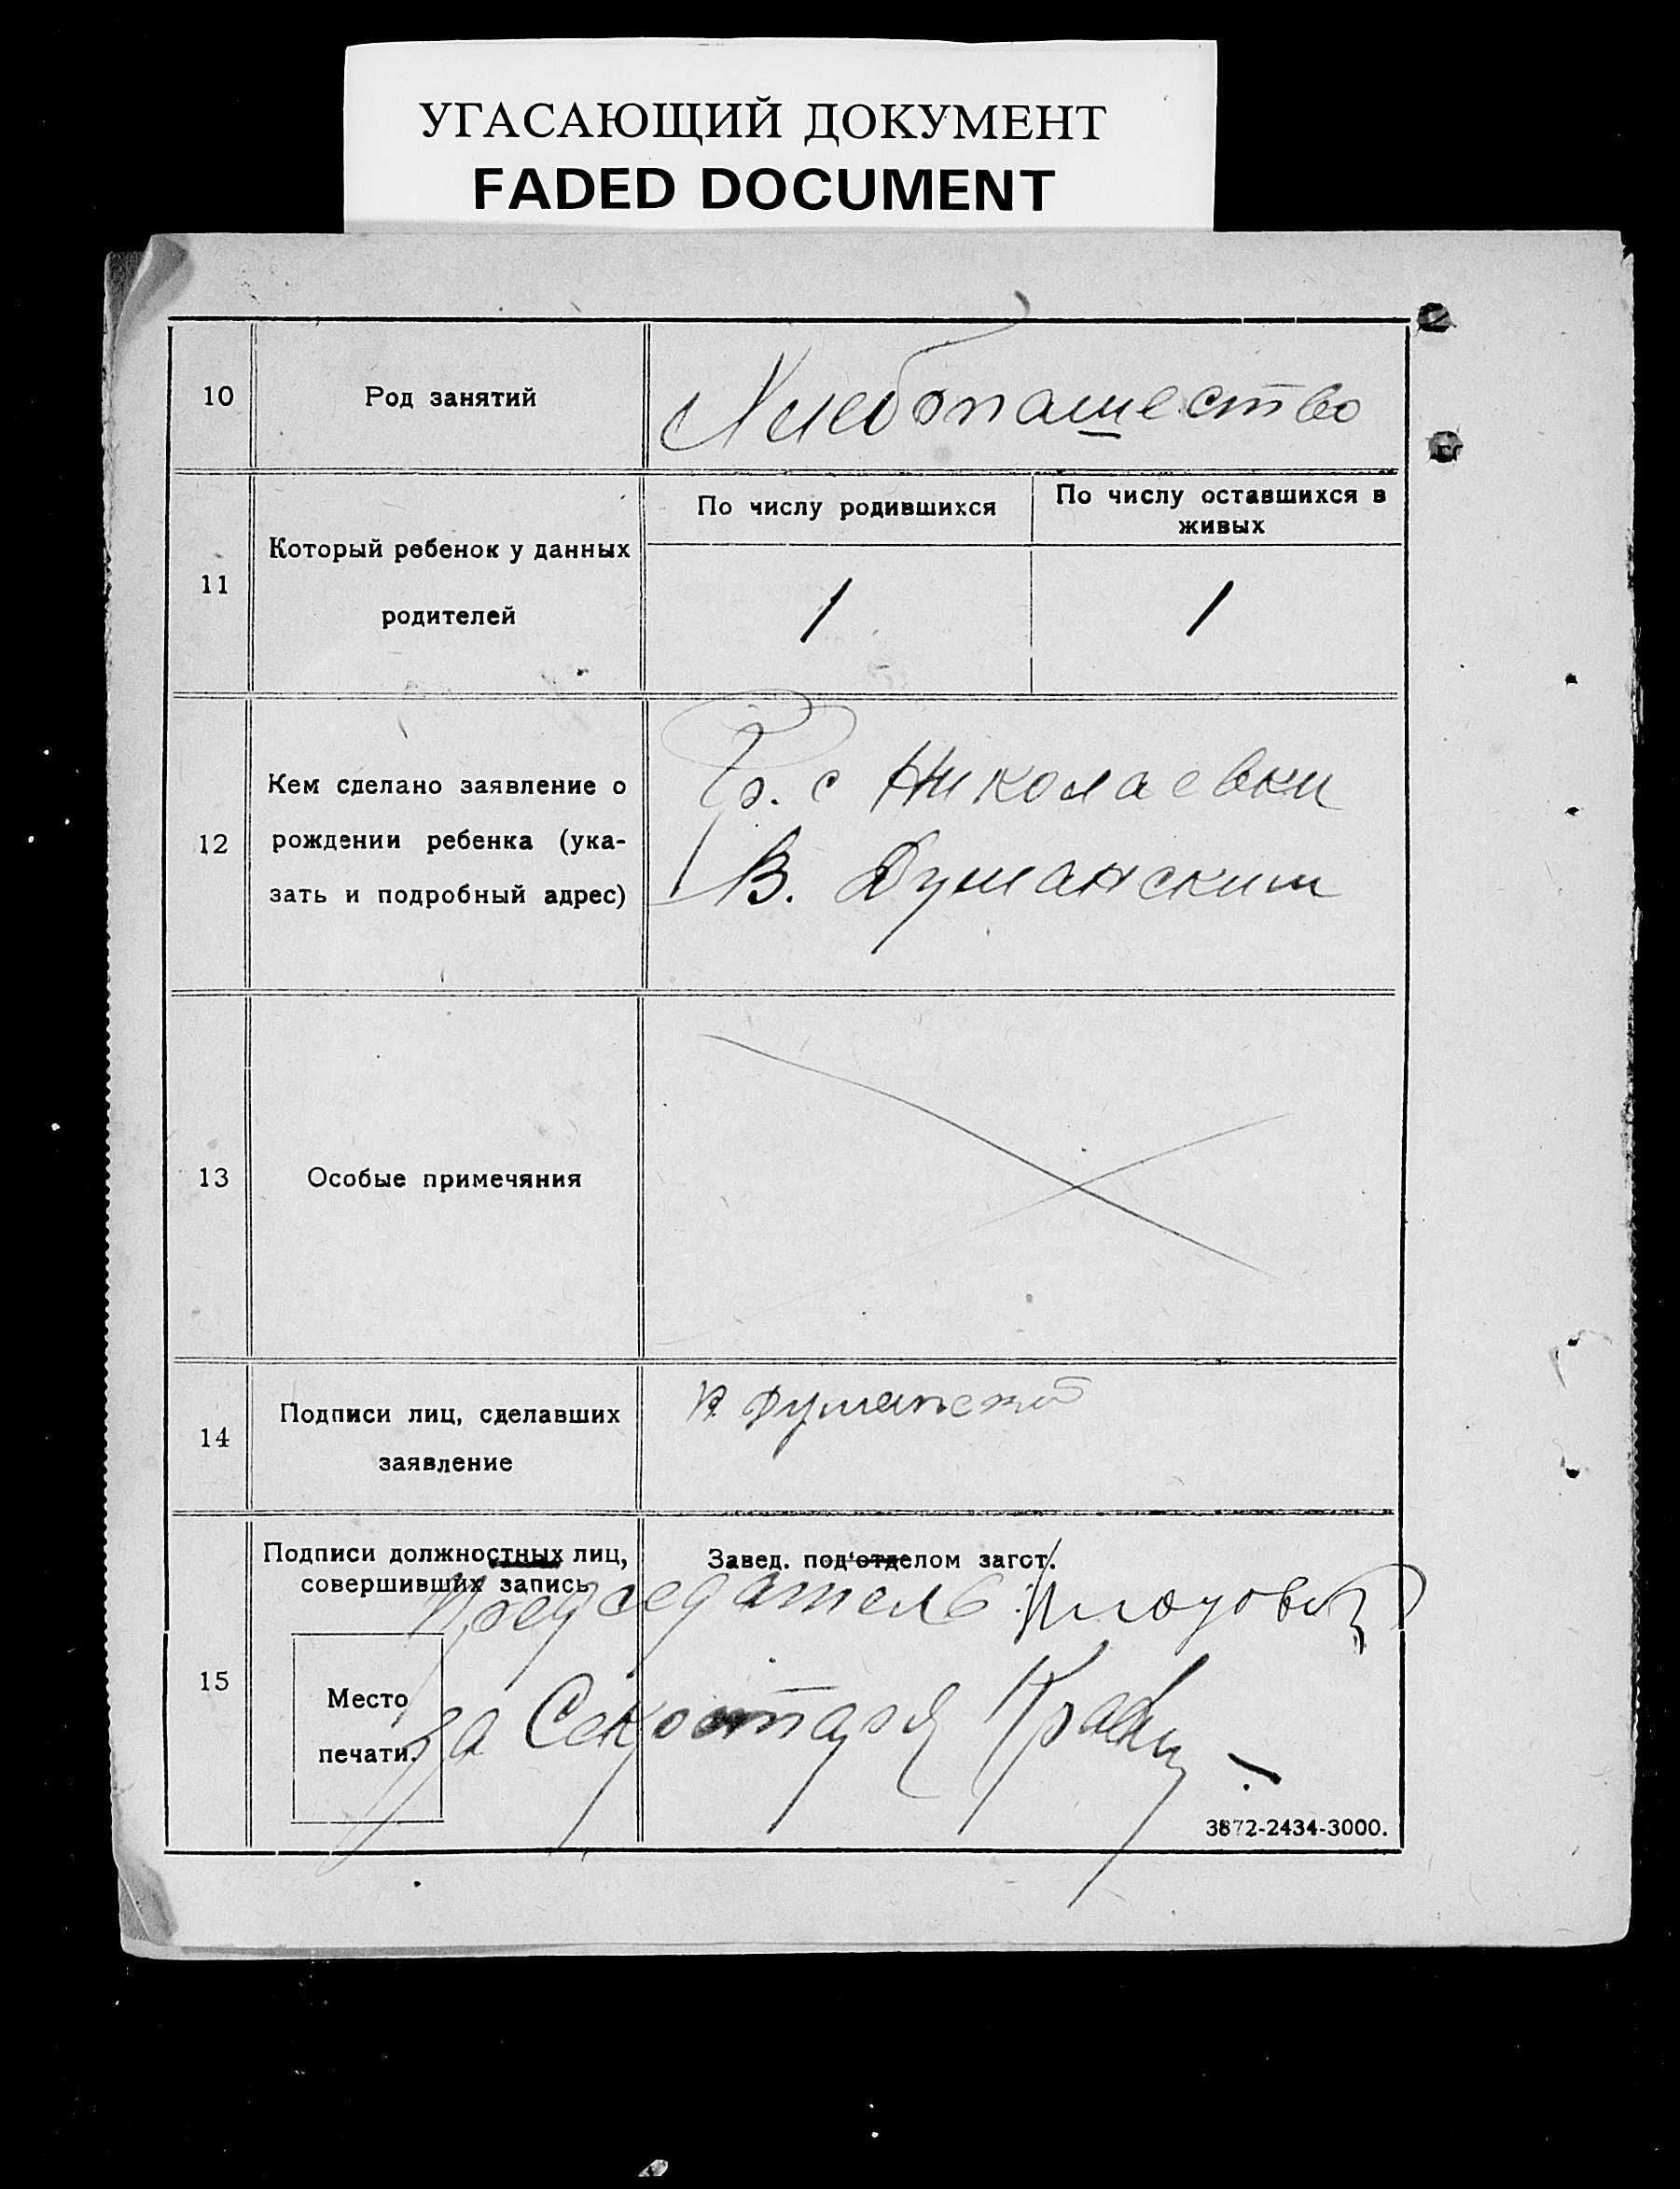 УГАСАЮЩИЙ ДОКУМЕНТ
FADED DOCUMENT
10
Род занятий
Хлебопашество
11
Который ребенок у данных
родителей
По числу родившихся
По числу оставшихся в
живых
1
1
12
Кем сделано заявление о
рождении ребенка (ука-
зать и подробный адрес)
Гр. с Николаевки
В. Думанским
13
Особые примечяния
14
Подписи лиц, сделавших
заявление
В Думанский
15
Подписи должностных лиц,
совершивших запись
Завед. под'отделом загст.
Председатель
Место
печати.
за Секретаря
3872-2434-3000.